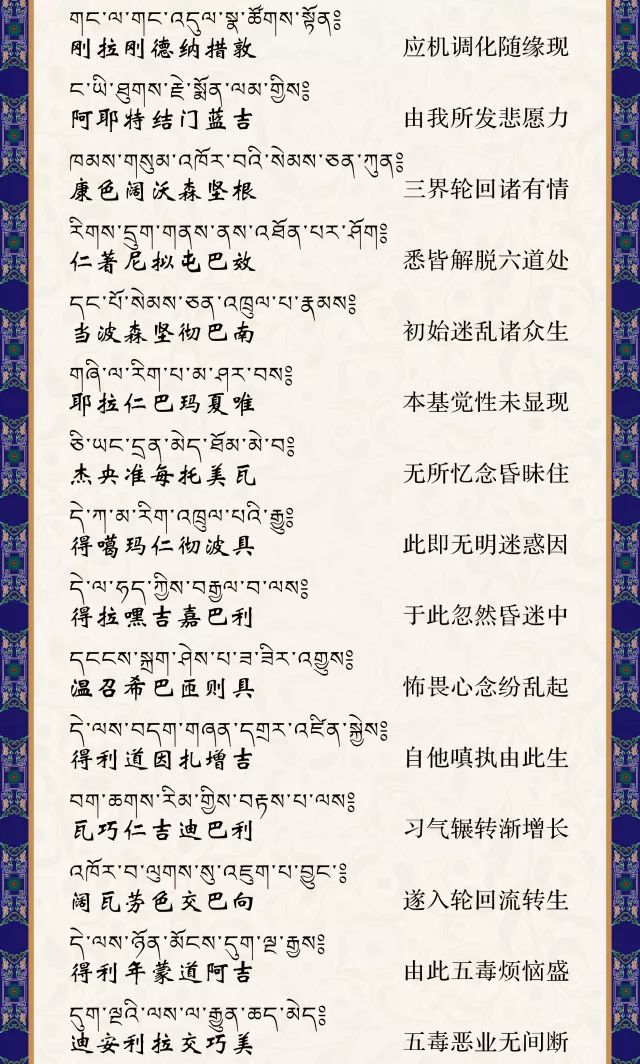 གང་ལ་གང་འདུལ་སྣ་ཚོགས་སྟོན༔
刚拉刚德纳措敦 应机调化随缘现
ང་ཡི་ཐུགས་རྗེ་སྨོན་ལམ་གྱིས༔
阿耶特结门蓝吉 由我所发悲愿力
ཁམས་གསུམ་འཁོར་བའི་སེམས་ཅན་ཀུན༔
康色阔沃森坚根 三界轮回诸有情
རིགས་དྲུག་གནས་ནས་འཐོན་པར་ཤོག༔
仁著尼拟屯巴效 悉皆解脱六道处
དང་པོ་སེམས་ཅན་འཁྲུལ་པ་རྣམས༔
当波森坚彻巴南 初始迷乱诸众生
གཞི་ལ་རིག་པ་མ་ཤར་བས༔
耶拉仁巴玛夏唯 本基觉性未显现
ཅི་ཡང་དྲན་མེད་ཐོམ་མེ་བ༔
杰央准每托美瓦 无所忆念昏昧住
དེ་ཀ་མ་རིག་འཁྲུལ་པའི་རྒྱུ༔
得噶玛仁彻波具 此即无明迷惑因
དེ་ལ་ཧད་ཀྱིས་བརྒྱལ་བ་ལས༔
得拉嘿吉嘉巴利 于此忽然昏迷中
དངངས་སྐྲག་ཤེས་པ་ཟ་ཟིར་འགྱུས༔
温召希巴匝则具 怖畏心念纷乱起
དེ་ལས་བདག་གཞན་དགྲར་འཛིན་སྐྱེས༔
得利道因扎增吉 自他嗔执由此生
བག་ཆགས་རིམ་གྱིས་བརྟས་པ་ལས༔
瓦巧仁吉迪巴利 习气辗转渐增长
འཁོར་བ་ལུགས་སུ་འཇུག་པ་བྱུང་༔
阔瓦劳色交巴向 遂入轮回流转生
དེ་ལས་ཉོན་མོངས་དུག་ལྔ་རྒྱས༔
得利年蒙道阿吉 由此五毒烦恼盛
དུག་ལྔའི་ལས་ལ་རྒྱུན་ཆད་མེད༔
迪安利拉交巧美 五毒恶业无间断